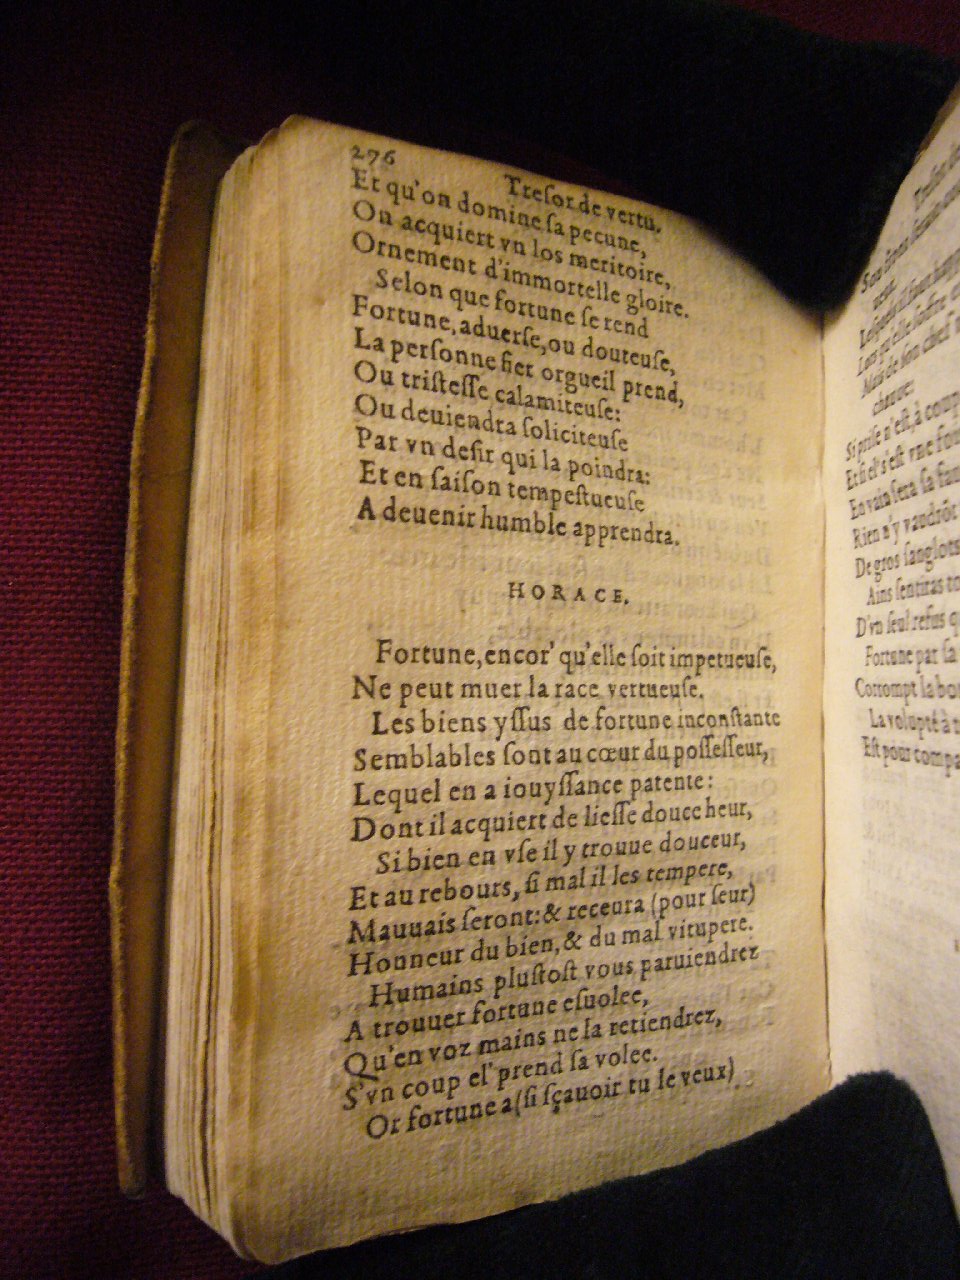 276
Tresor de vertu.
Et qu'on domine sa pecune,
On acquiert vn los meritoire,
Ornement d'immortelle gloire.
Selon que fortune se rend
Fortune, aduerse, ou douteuse,
La personne fier orgueil prend,
Ou tristesse calamiteuse:
Ou deuiendra soliciteuse
Par vn desir qui la poindra:
Et en saison tempestueuse
A deuenir humble apprendra.
HORACE.
Fortune, encor' qu'elle soit impetueuse,
Ne peut muer la race vertueuse.
Les biens yssus de fortune inconstante
Semblables sont au cœur du possesseur,
Lequel en a iouyssance patente:
Dont il acquiert de liesse douce heur,
Si bien en vse il y trouue douceur,
Et au rebours, si mal il les tempere,
Mauuais seront: & receura (pour seur)
Honneur du bien, & du mal vitupere.
Humains plustost vous paruiendrez
A trouuer fortune esuolee,
Qu'en voz mains ne la retiendrez,
S'vn coup el' prend sa volee.
Or fortune a (si sçauoir tu le veux)
Lors qu'elle
Mais de son chef
chauue:
Si prise n'est, à
Et si el' s'est vne
En vain sera sa
Rien n'y vaudrõt
De gros sanglots
Ains sentiras
D'vn seul refus
Fortune par sa
Corrompt la
La volupté à
Est pour